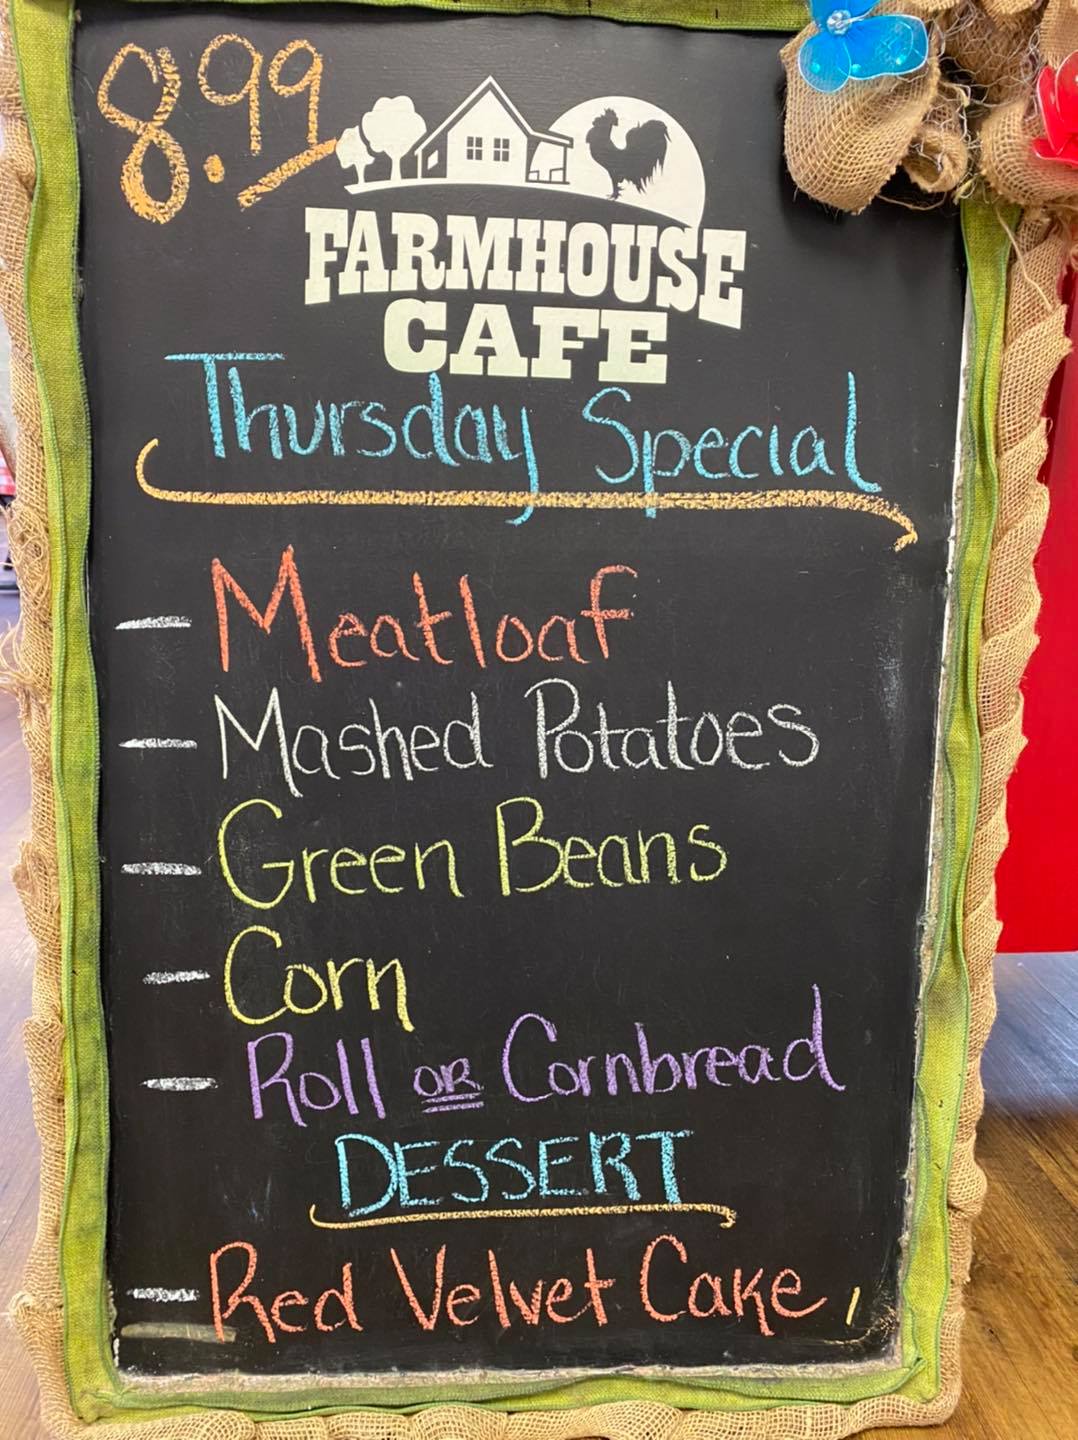 8.99
FARMHOUSE
CAFE
Thursday Special
— Meatloaf
— Mashed Potatoes
— Green Beans
— Corn
— Roll OR Cornbread
DESSERT
— Red Velvet Cake